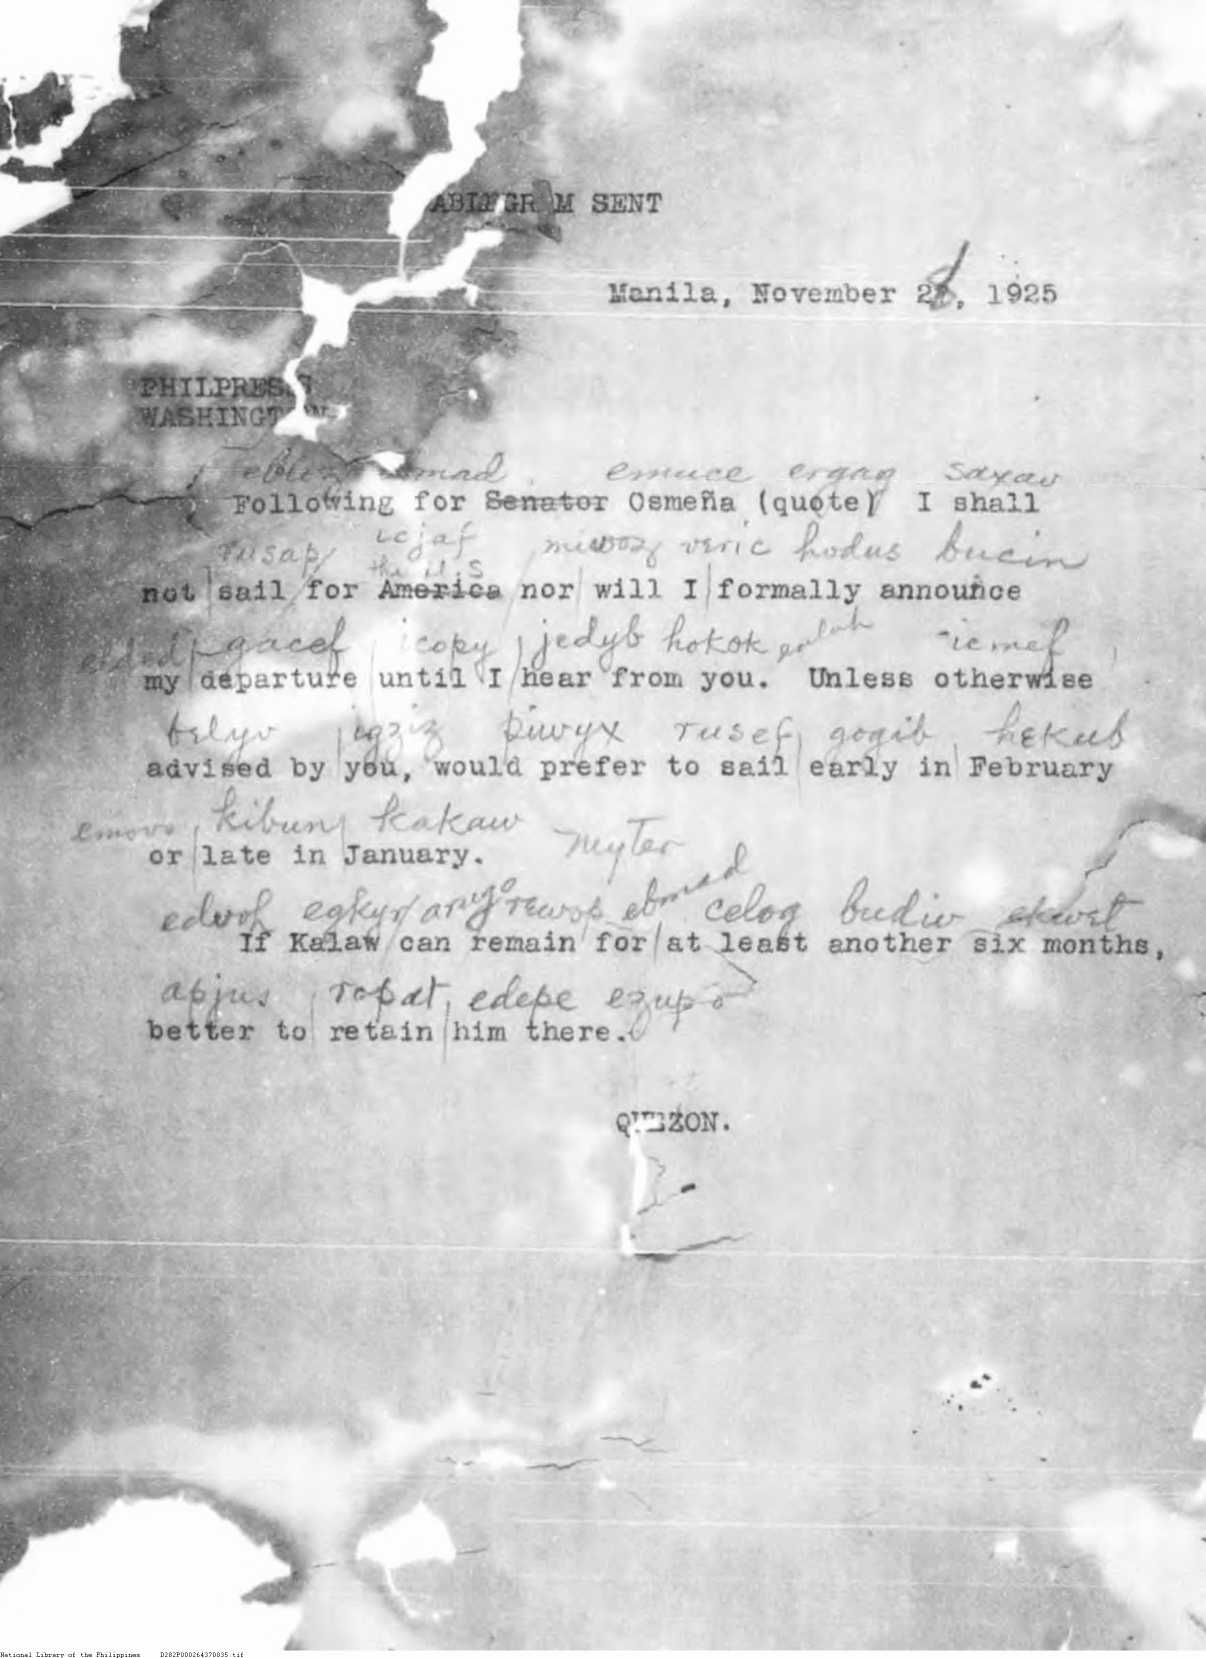 ABLEGRAM SENT
Manila, November 28, 1925
PHILPRESS
WASHINGTON
emuce ergag saxav
Following for Senator Osmeña (quote) I shall
rusap icjaf veric hodus bucin
the U.S
not sail for America nor will I formally announce
gacef icopy jedyb hokok icmef
my departure until I hear from you. Unless otherwise
igziz piwyx rusef gogib hekub
advised by you, would prefer to sail early in February
kibun kakaw
or late in January.
edvof celog budiw
If Kalaw can remain for at least another six months,
apjus ropat edepe
better to retain him there.
QUEZON.
National Library of the Philippines D282P000264370835.tif